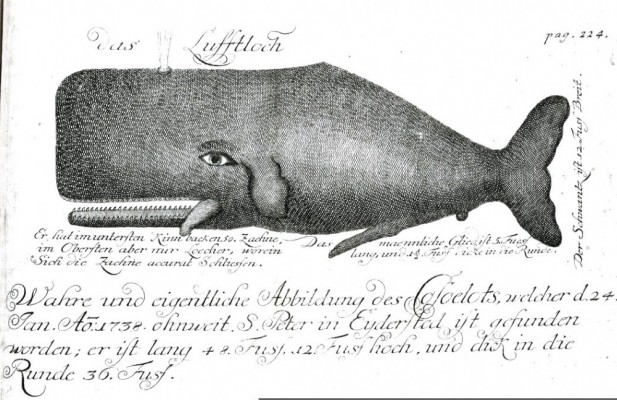 das Lufftloch
pag. 224.
Der Schwantz ist 12 Fuss Breit.
Er hat im untersten Kinn backen 50. Zaehne,
im Obersten aber nur Löcher, worein
Sich die Zaehne accurat Schliessen.
Das maennliche Glied ist 5. Fuess
lang, und 1½ Fuss dicke in die Runde.
Wahre und eigentliche Abbildung des welcher d. 24.
Jan. Ao. 1738. ohnweit S. Peter in Eydersted ist gefunden
worden; er ist lang 48. Fuss, 12 Fuss hoch, und dick in die
Runde 36. Fuss.